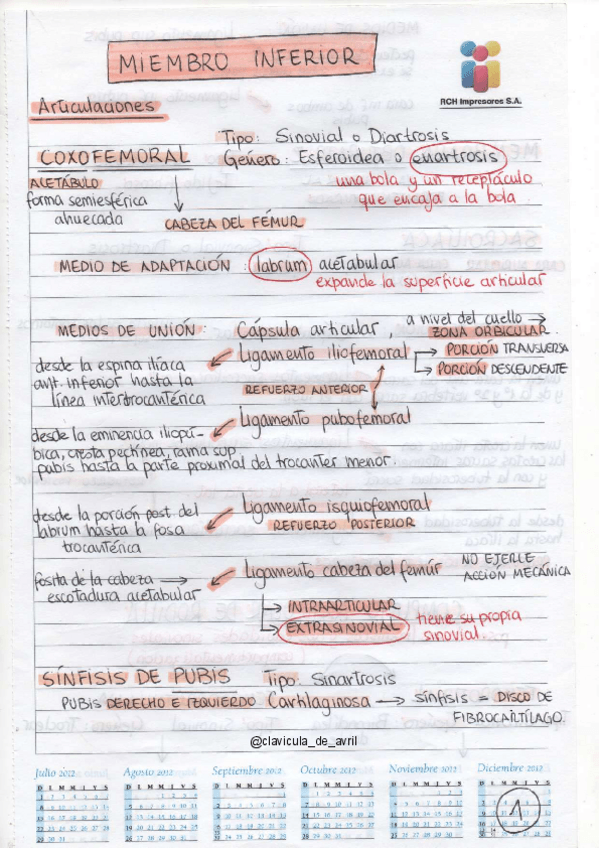 MIEMBRO INFERIOR
RCH Impresores S.A.
Articulaciones
Tipo: Sinovial o Diartrosis
COXOFEMORAL Género: Esferoidea o enartrosis
ACETÁBULO una bola y un receptáculo
forma semiesférica que encaja a la bola.
ahuecada CABEZA DEL FÉMUR
MEDIO DE ADAPTACIÓN: labrum acetabular
expande la superficie articular
MEDIOS DE UNIÓN: Cápsula articular, a nivel del cuello →
ZONA ORBICULAR
desde la espina ilíaca Ligamento iliofemoral → PORCIÓN TRANSVERSA
ant. inferior hasta la → PORCIÓN DESCENDENTE
línea intertrocantérica REFUERZO ANTERIOR
Ligamento pubofemoral
desde la eminencia iliopú-
bica, cresta pectínea, rama sup.
pubis hasta la parte proximal del trocanter menor.
desde la porción post. del Ligamento isquiofemoral
labrum hasta la fosa REFUERZO POSTERIOR
trocantérica
fosita de la cabeza → Ligamento cabeza del femúr NO EJERLE
escotadura acetabular ACCIÓN MECÁNICA
→ INTRAARTICULAR
→ EXTRASINOVIAL tiene su propia
sinovial.
SÍNFISIS DE PUBIS Tipo: Sinartrosis
PUBIS DERECHO E IZQUIERDO Cartilaginosa → sínfisis = DISCO DE
FIBROCARTÍLAGO.
@clavicula_de_avril
Julio 2012 Agosto 2012 Septiembre 2012 Octubre 2012 Noviembre 2012 Diciembre 2012
D L M M J V S D L M M J V S D L M M J V S D L M M J V S D L M M J V S D L M M J V S
1